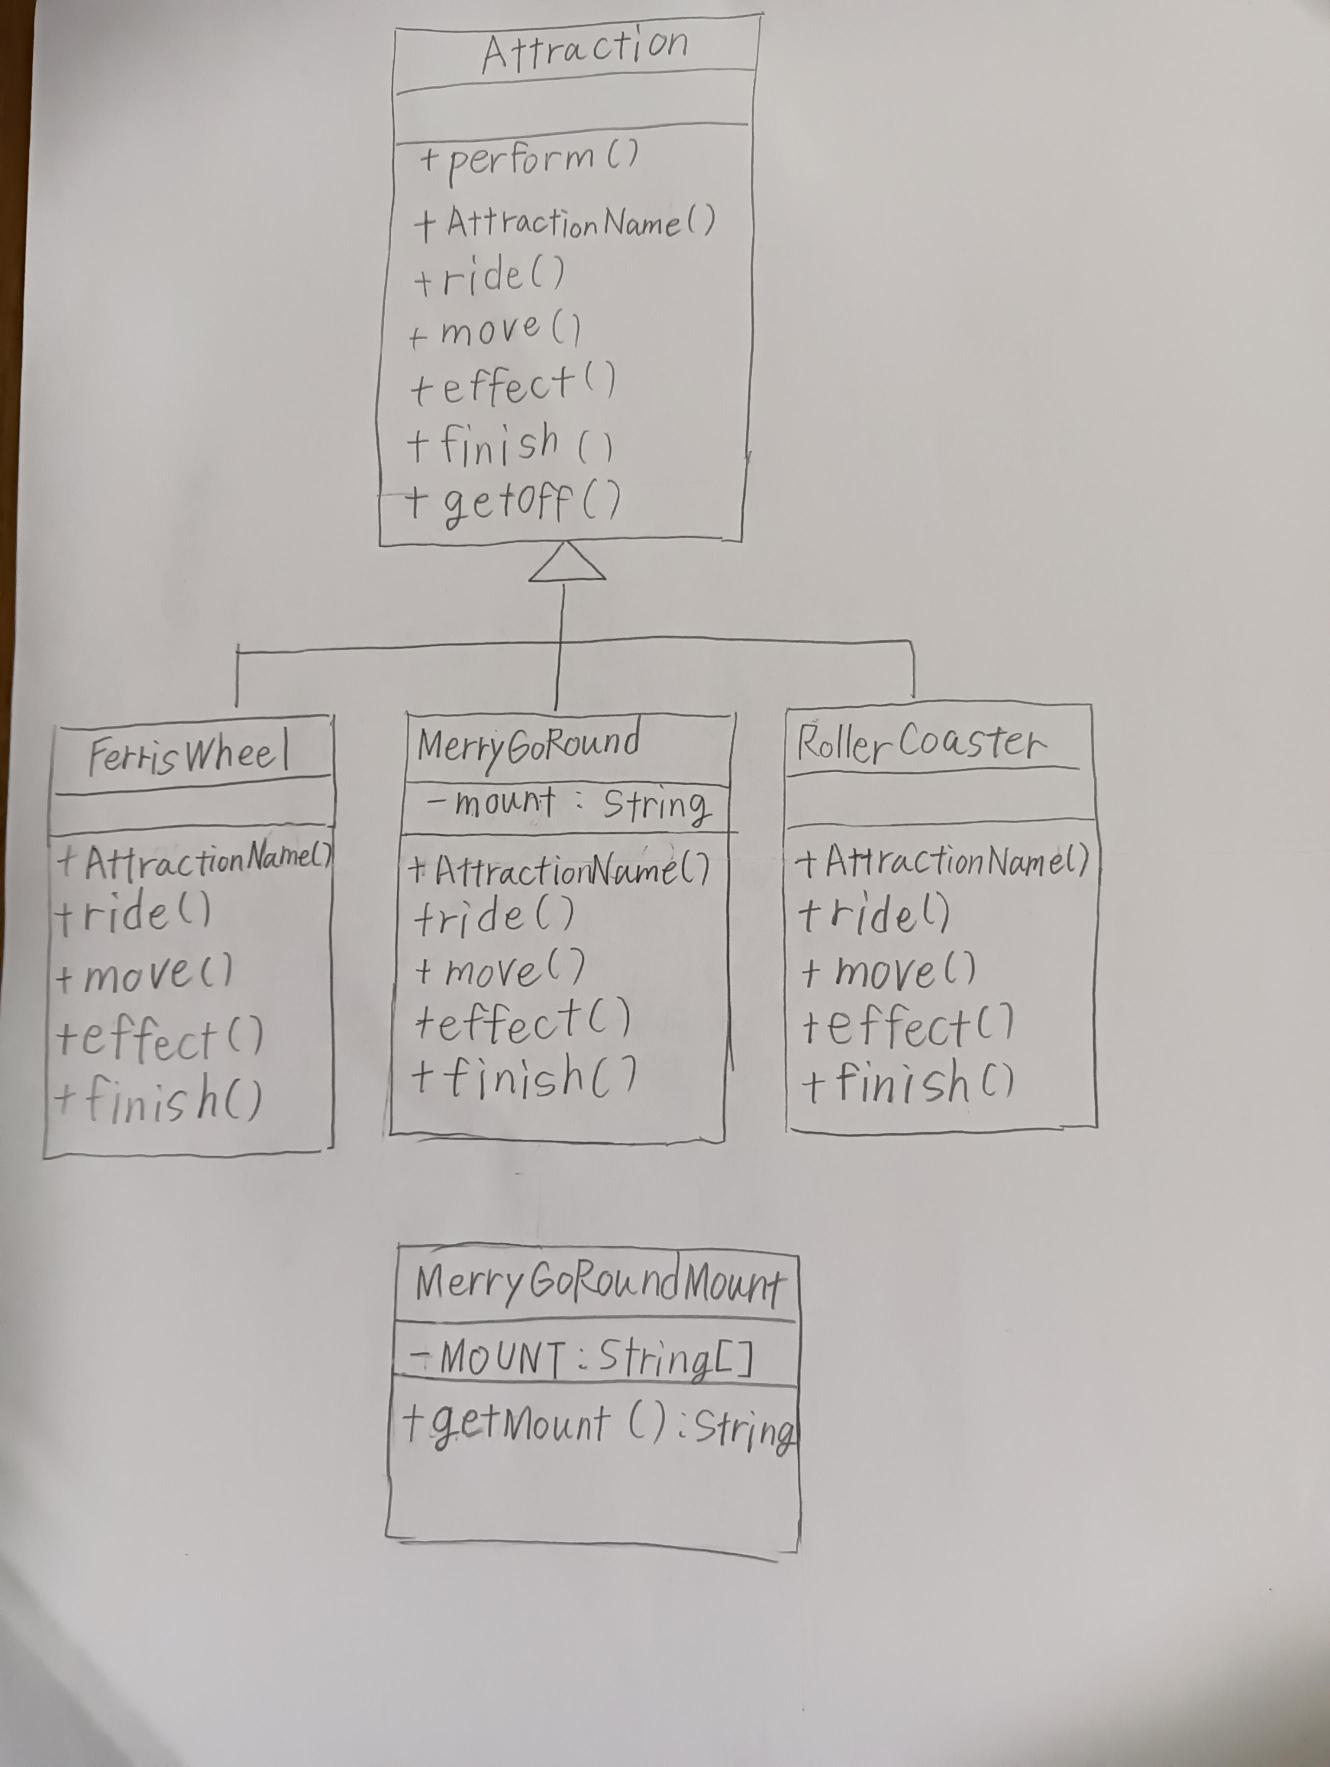 Attraction
+perform()
+AttractionName()
+ride()
+move()
+effect()
+finish()
+getOff()
FerrisWheel
+AttractionName()
+ride()
+move()
+effect()
+finish()
MerryGoRound
-mount: String
+AttractionName()
+ride()
+move()
+effect()
+finish()
RollerCoaster
+AttractionName()
+ride()
+move()
+effect()
+finish()
MerryGoRoundMount
-MOUNT: String[]
+getMount(): String